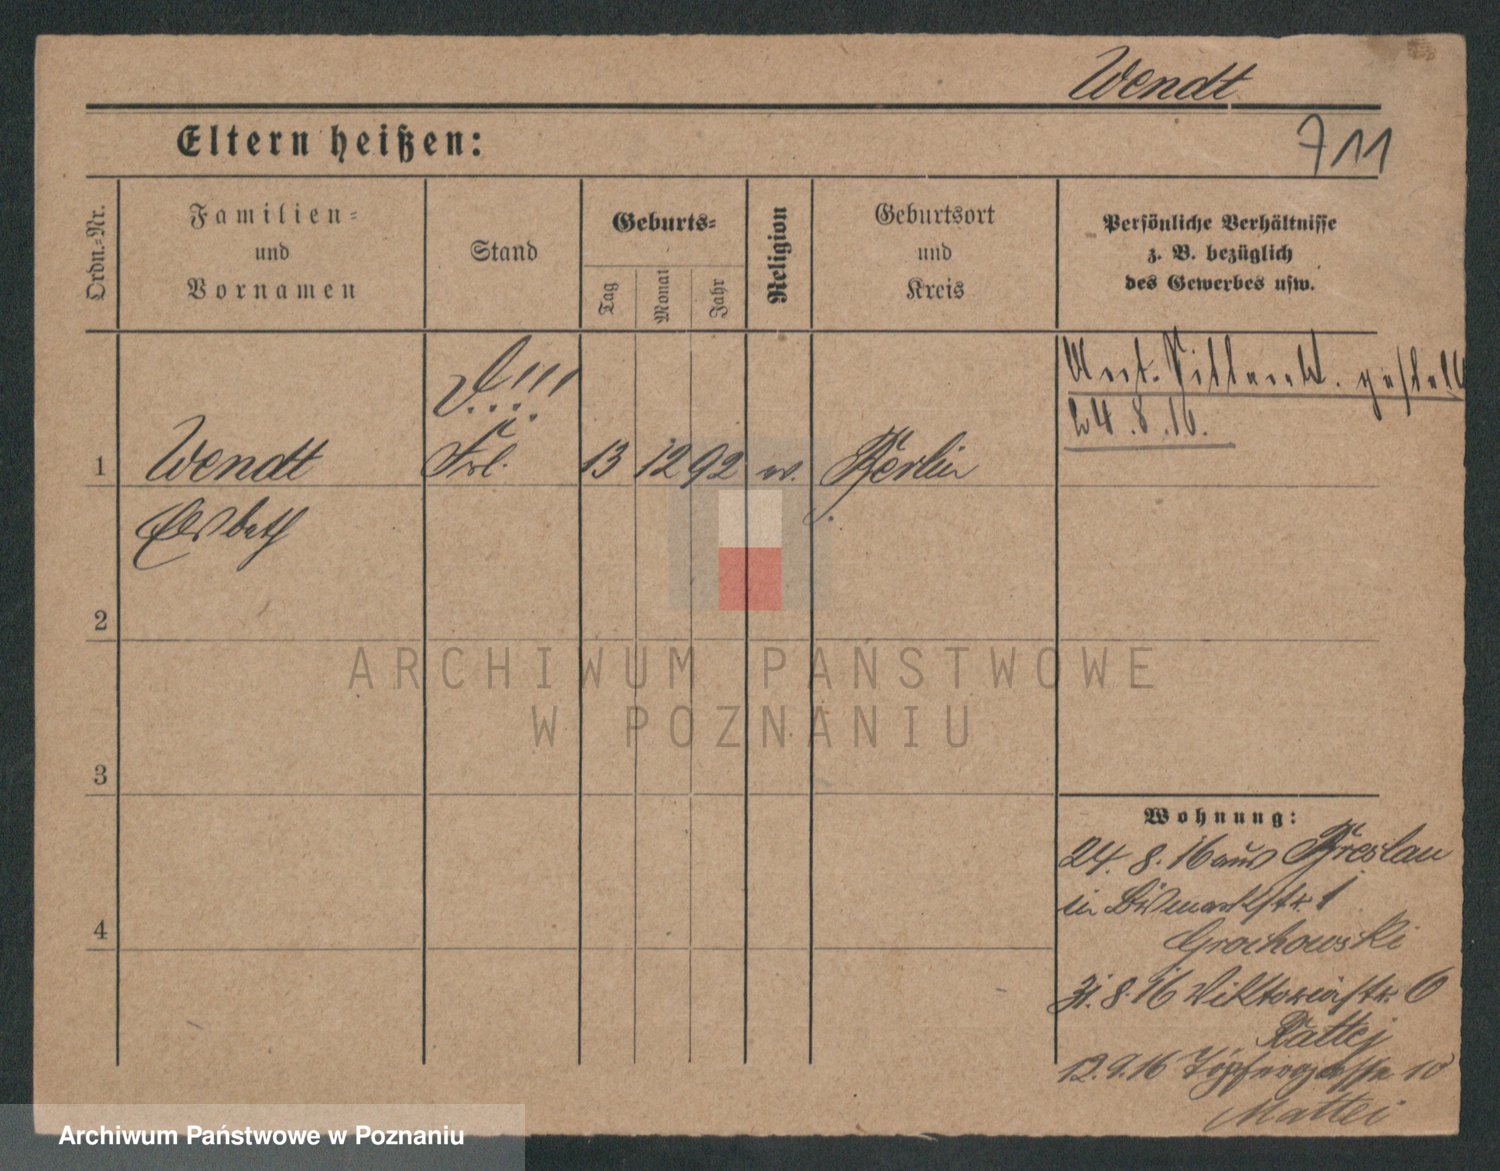 Wendt
Eltern heißen:
711
Ordn.=Nr.
Familien=
und
Vornamen
Stand
Geburts=
Tag
Monat
Jahr
Religion
Geburtsort
und
Kreis
Persönliche Verhältnisse
z. B. bezüglich
des Gewerbes usw.
gestellt
24.8.16.
1
Wendt
Frl.
13
12
92
Berlin
Elsbeth
2
ARCHIWUM PAŃSTWOWE
W POZNANIU
3
4
Wohnung:
24. 8. 16 aus Breslau
in Bismarckstr. 1
Grochowski
31. 8. 16 Viktoriastr. 6
12.9.16 Töpfergasse 10
Mattei
Archiwum Państwowe w Poznaniu